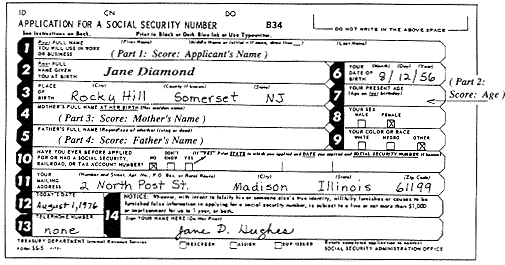 ID CN DO
APPLICATION FOR A SOCIAL SECURITY NUMBER B34
See Instructions on Back. Print in Black or Dark Blue Ink or Use Typewriter. DO NOT WRITE IN THE ABOVE SPACE
1 Print FULL NAME YOU WILL USE IN WORK OR BUSINESS (First Name) (Middle Name or Initial – if none, draw line) (Last Name)
(Part 1: Score: Applicant's Name)
2 Print FULL NAME GIVEN YOU AT BIRTH Jane Diamond
6 YOUR DATE OF BIRTH (Month) (Day) (Year) 8/12/56
(Part 2: Score: Age)
3 PLACE OF BIRTH (City) (County if known) (State) Rocky Hill Somerset NJ
7 YOUR PRESENT AGE (Age on last birthday)
4 MOTHER'S FULL NAME AT HER BIRTH (Her maiden name)
(Part 3: Score: Mother's Name)
8 YOUR SEX MALE FEMALE X
5 FATHER'S FULL NAME (Regardless of whether living or dead)
(Part 4: Score: Father's Name)
9 YOUR COLOR OR RACE WHITE NEGRO OTHER X
10 HAVE YOU EVER BEFORE APPLIED FOR OR HAD A SOCIAL SECURITY, RAILROAD, OR TAX ACCOUNT NUMBER? NO X DON'T KNOW YES (If "YES" Print STATE in which you applied and DATE you applied and SOCIAL SECURITY NUMBER if known)
11 YOUR MAILING ADDRESS (Number and Street, Apt. No., P.O. Box, or Rural Route) (City) (State) (Zip Code)
2 North Post St. Madison Illinois 61199
12 TODAY'S DATE August 1, 1976
NOTICE: Whoever, with intent to falsify his or someone else's true identity, willfully furnishes or causes to be furnished false information in applying for a social security number, is subject to a fine of not more than $1,000 or imprisonment for up to 1 year, or both.
13 TELEPHONE NUMBER none
14 Sign YOUR NAME HERE (Do Not Print) Jane D. Hughes
TREASURY DEPARTMENT Internal Revenue Service RESCREEN ASSIGN DUP ISSUED Return completed application to nearest SOCIAL SECURITY ADMINISTRATION OFFICE
FORM SS-5